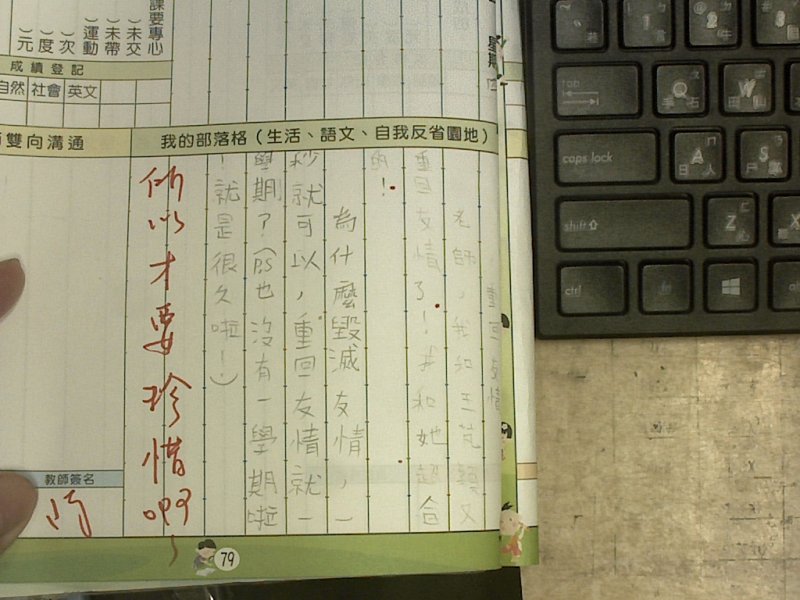 重回友情
老師,我和王芃穎又
重回友情了!我和她超合
的!
為什麼毀滅友情,一
秒就可以,重回友情就一
學期?(PS也沒有一學期啦
!就是很久啦!)
所以才要珍惜啊~
我的部落格(生活、語文、自我反省園地)
雙向溝通
教師簽名
課要專心
)未交
)未帶
)運動
)次
)度
)元
成績登記
自然 社會 英文
星期
79
tap
caps lock
shift
ctrl
alt
Q 手
W 田
A 日
S 尸
Z
X